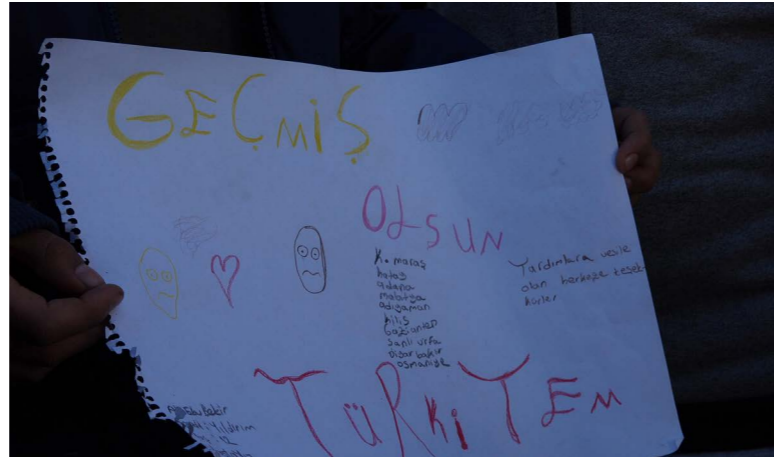 GEÇMİŞ
OLSUN
K. maraş
hatay
adana
malatya
adıyaman
kilis
Gaziantep
Şanlı urfa
Diyarbakır
osmaniye
Yardımlara vesile
olan herkeze teşek-
kürler
TÜRKİYEM
Ebubekir
Yıldırım
12